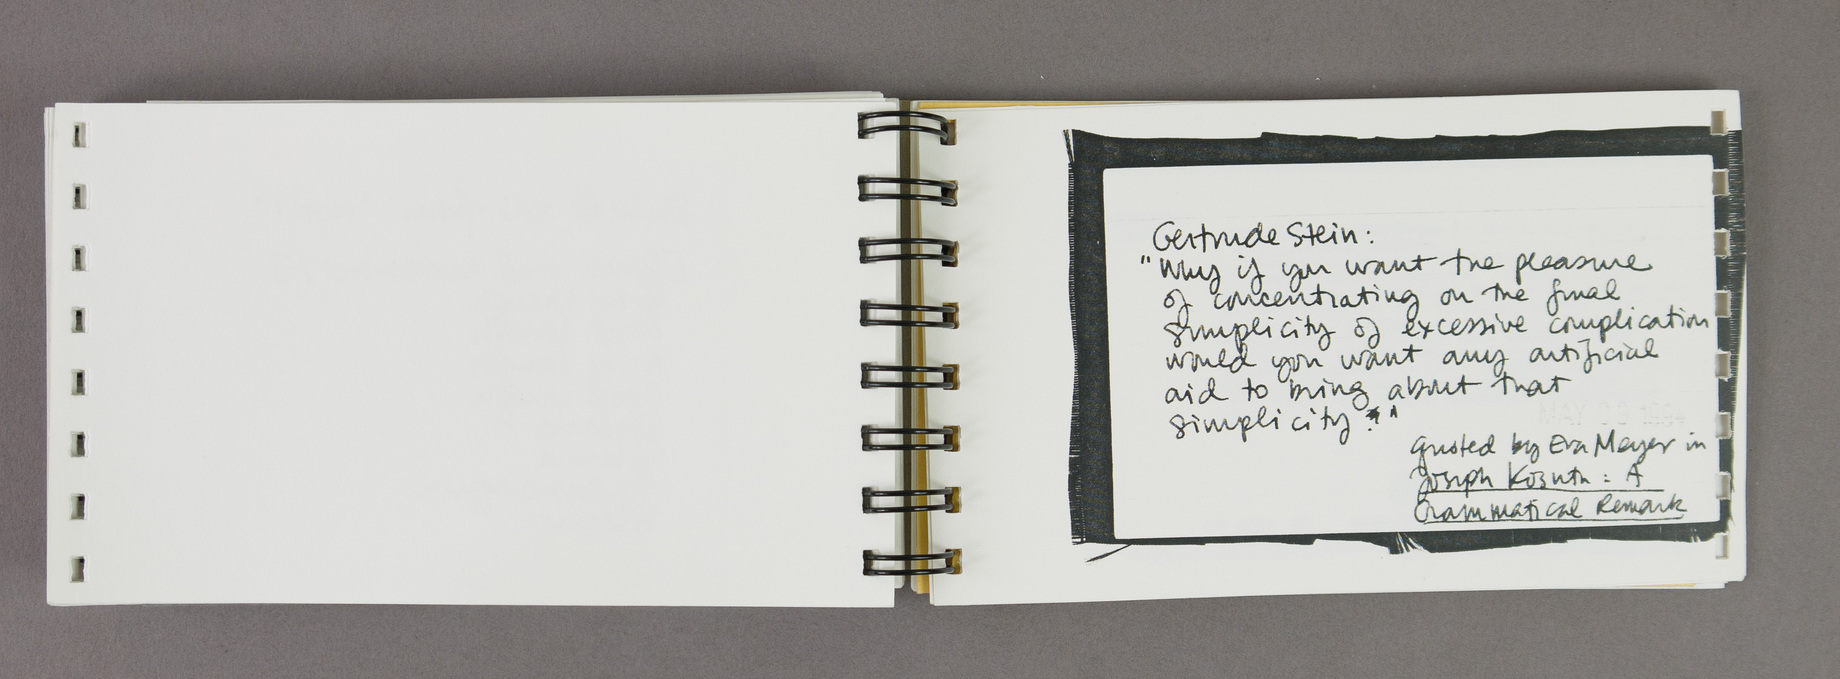 Gertrude Stein:
"Why if you want the pleasure
of concentrating on the final
simplicity of excessive complication
would you want any artificial
aid to bring about that
simplicity?"
quoted by Eva Meyer in
Joseph Kosuth: A
Grammatical Remark